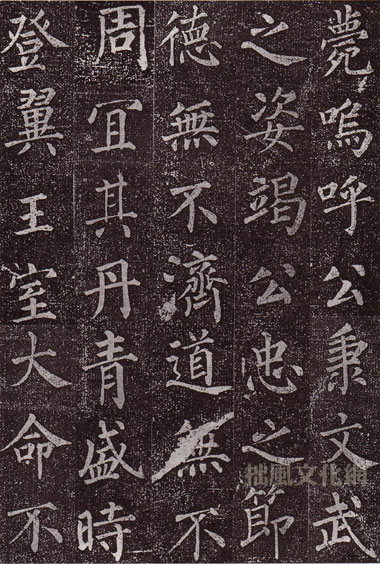 薨嗚呼公秉文武
之姿竭公忠之節
德無不濟道無不
周宜其丹青盛時
登翼王室大命不
拙風文化網